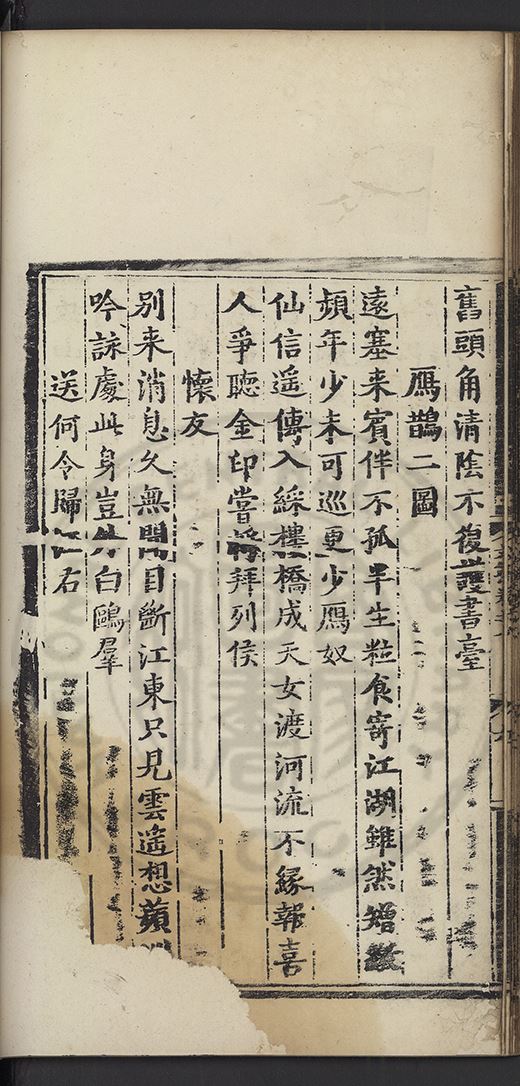 舊頭角清陰不復護書臺
鴈鵲二圖
遠塞來賓伴不孤半生粒食寄江湖雖然矰
頻年少未可巡更少鴈奴
仙信遥傳入綵樓橋成天女渡河流不緣報喜
人爭聽金印嘗拜列侯
懷友
别來消息久無聞目斷江東只見雲遥想蘋
吟詠處此身豈外白鷗羣
送何令歸江右